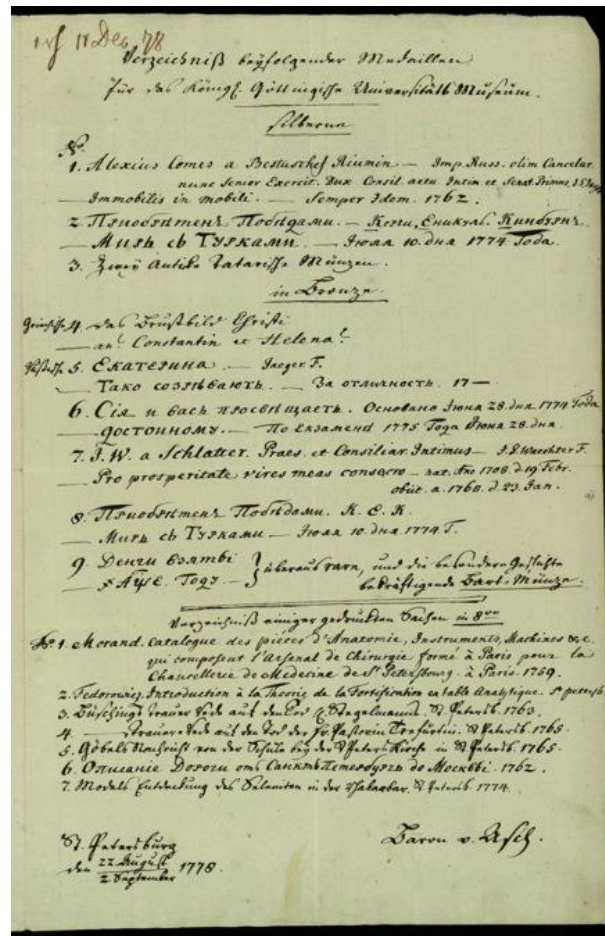 11 Dec. 78
Verzeichniß beyfolgender Medaillen
für das Königl. Göttingische Universitäts Museum.
silberne
No.
1. Alexius Comes a Bestuschef Riumin — Imp. Russ. olim Cancelar.
nunc Senior Exercit. Dux Consil. actu Intim et Senat. Primus.
— Immobilis in mobili. — Semper Idem. 1762.
2. Пріобрѣтенъ Побѣдами. — Керчи, Еникуль. Кинбурнъ.
— Миръ съ Турками. — Іюля 10. дня 1774. Года.
3. Zwey Antike Tatarische Münzen.
in Bronze.
4. das Brustbild Christi
— Constantin et Helena.
5. Екатерина — Jaeger F.
— Тако созрѣваютъ. — За отличность. 17—
6. Сія и васъ просвѣщаетъ. Основано Іюня 28. дня. 1774 Года
— достойному. — По екзамени 1775 Года Іюня 28. дня.
7. J. W. a Schlatter. Praes. et Consiliar. Intimus — Waechter F.
— Pro prosperitate vires meas consecro — nat. Ano 1708. d. 19 Febr.
obiit. a. 1768. d. 23. Jan.
8. Пріобрѣтенъ Побѣдами. К. Е. К.
— Миръ съ Турками — Іюля 10. дня 1774 Г.
9. Денги взяты
Году — } überaus rare, und die besondere Geschichte
bekräftigende Bart-Münze.
Verzeichniß einiger gedruckten Sachen in 8vo
No. 1. Morand. Catalogue des pièces d'Anatomie, Instruments, Machines &c.
qui composent l'Arsenal de Chirurgie formé à Paris pour la
Chancellerie de Médecine de St Petersbourg. à Paris. 1759.
2. Fedorowiz, Introduction à la Theorie de la Fortification en table Analytique. St petersb.
3. Büschings Trauer Rede auf den Tod Stegelmanns. St. Petersb. 1763.
4. — Trauer Rede auf den Tod der Fr. Pastorin Trefurtin. St Petersb. 1765.
5. Göbels Nachricht von der Schule bey der St Peters Kirche in St Petersb. 1765.
6. Описаніе Дороги отъ Санктпетербурга до Москвы. 1762.
7. Models Entdeckung des Seleniten in der Rhabarbar. St Petersb. 1774.
St. Petersburg
den 22. August / 2 September 1778.
Baron v. Asch.